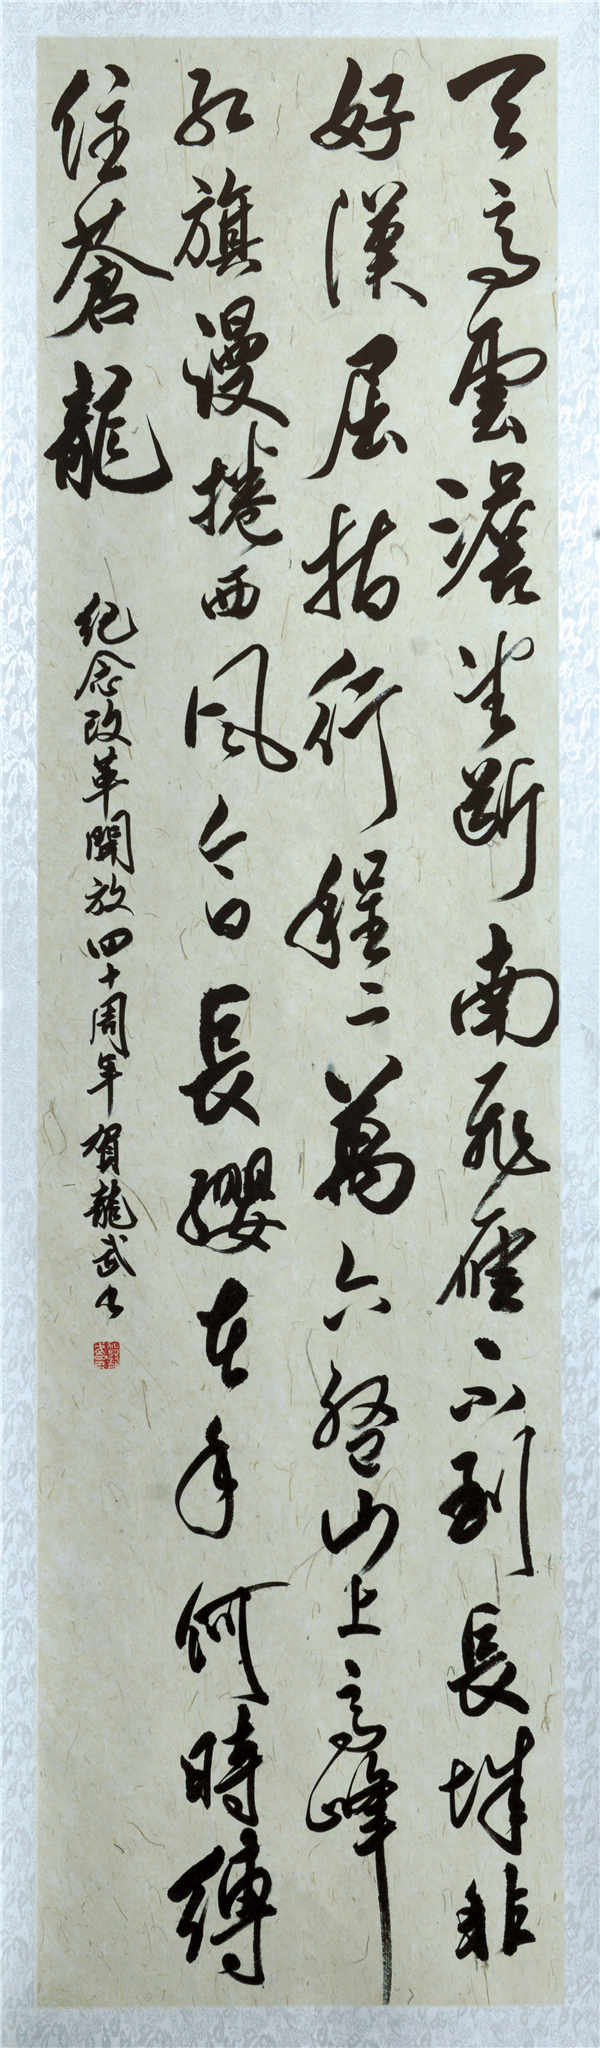 天高雲澹望斷南飛雁不到長城非
好漢屈指行程二萬六盤山上高峰
紅旗漫捲西風今日長纓在手何時縛
住蒼龍
纪念改革開放四十周年賀龍武书